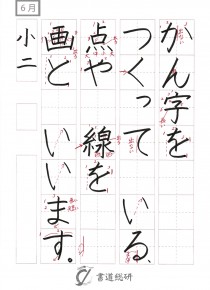 6月
かん字を
つくって いる、
点や 線を
画と いいます。
小二
書道総研